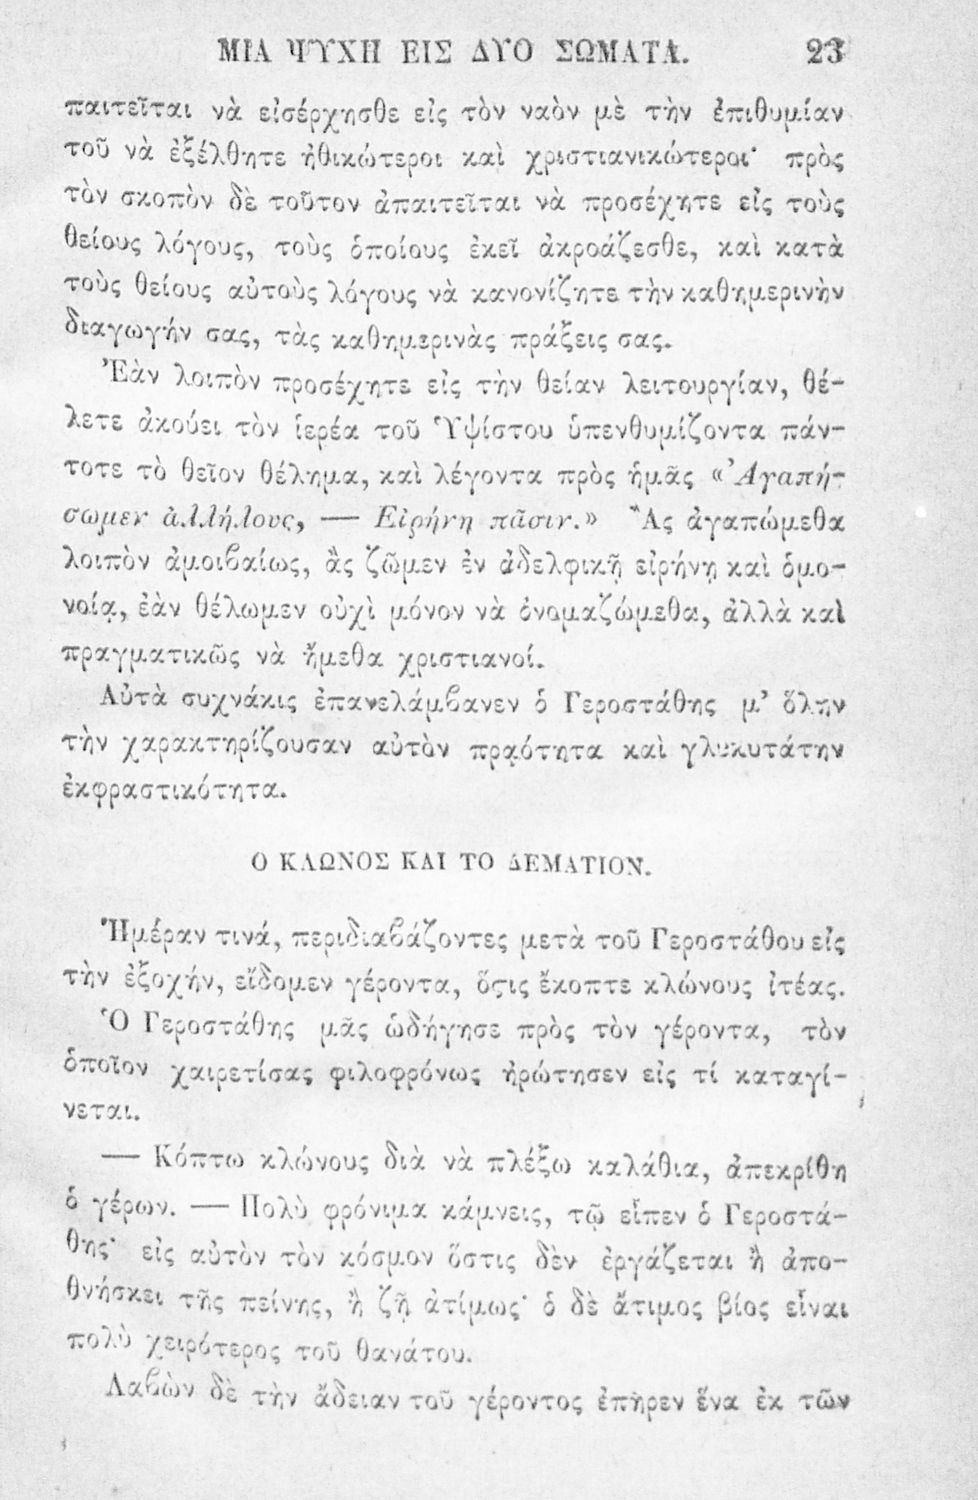 ΜΙΑ ΨΥΧΗ ΕΙΣ ΔΥΟ ΣΩΜΑΤΑ. 23
παιτεῖται νὰ εἰσέρχησθε εἰς τὸν ναὸν μὲ τὴν ἐπιθυμίαν
τοῦ νὰ ἐξέλθητε ἠθικώτεροι καὶ χριστιανικώτεροι· πρὸς
τὸν σκοπὸν δὲ τοῦτον ἀπαιτεῖται νὰ προσέχητε εἰς τοὺς
θείους λόγους, τοὺς ὁποίους ἐκεῖ ἀκροάζεσθε, καὶ κατὰ
τοὺς θείους αὐτοὺς λόγους νὰ κανονίζητε τὴν καθημερινὴν
διαγωγήν σας, τὰς καθημερινὰς πράξεις σας.
Ἐὰν λοιπὸν προσέχητε εἰς τὴν θείαν λειτουργίαν, θέ-
λετε ἀκούει τὸν ἱερέα τοῦ Ὑψίστου ὑπενθυμίζοντα πάν-
τοτε τὸ θεῖον θέλημα, καὶ λέγοντα πρὸς ἡμᾶς «Ἀγαπή-
σωμεν ἀλλήλους, — Εἰρήνη πᾶσιν.» Ἂς ἀγαπώμεθα
λοιπὸν ἀμοιβαίως, ἂς ζῶμεν ἐν ἀδελφικῇ εἰρήνῃ καὶ ὁμο-
νοίᾳ, ἐὰν θέλωμεν οὐχὶ μόνον νὰ ὀνομαζώμεθα, ἀλλὰ καὶ
πραγματικῶς νὰ ἤμεθα χριστιανοί.
Αὐτὰ συχνάκις ἐπανελάμβανεν ὁ Γεροστάθης μ’ ὅλην
τὴν χαρακτηρίζουσαν αὐτὸν πρᾳότητα καὶ γλυκυτάτην
ἐκφραστικότητα.
Ο ΚΛΩΝΟΣ ΚΑΙ ΤΟ ΔΕΜΑΤΙΟΝ.
Ἡμέραν τινά, περιδιαβάζοντες μετὰ τοῦ Γεροστάθου εἰς
τὴν ἐξοχήν, εἴδομεν γέροντα, ὅςις ἔκοπτε κλώνους ἰτέας.
Ὁ Γεροστάθης μᾶς ὡδήγησε πρὸς τὸν γέροντα, τὸν
ὁποῖον χαιρετίσας φιλοφρόνως ἠρώτησεν εἰς τί καταγί-
νεται.
— Κόπτω κλώνους διὰ νὰ πλέξω καλάθια, ἀπεκρίθη
ὁ γέρων. — Πολὺ φρόνιμα κάμνεις, τῷ εἶπεν ὁ Γεροστά-
θης· εἰς αὐτὸν τὸν κόσμον ὅστις δὲν ἐργάζεται ἢ ἀπο-
θνήσκει τῆς πείνης, ἢ ζῇ ἀτίμως· ὁ δὲ ἄτιμος βίος εἶναι
πολὺ χειρότερος τοῦ θανάτου.
Λαβὼν δὲ τὴν ἄδειαν τοῦ γέροντος ἐπῆρεν ἕνα ἐκ τῶν